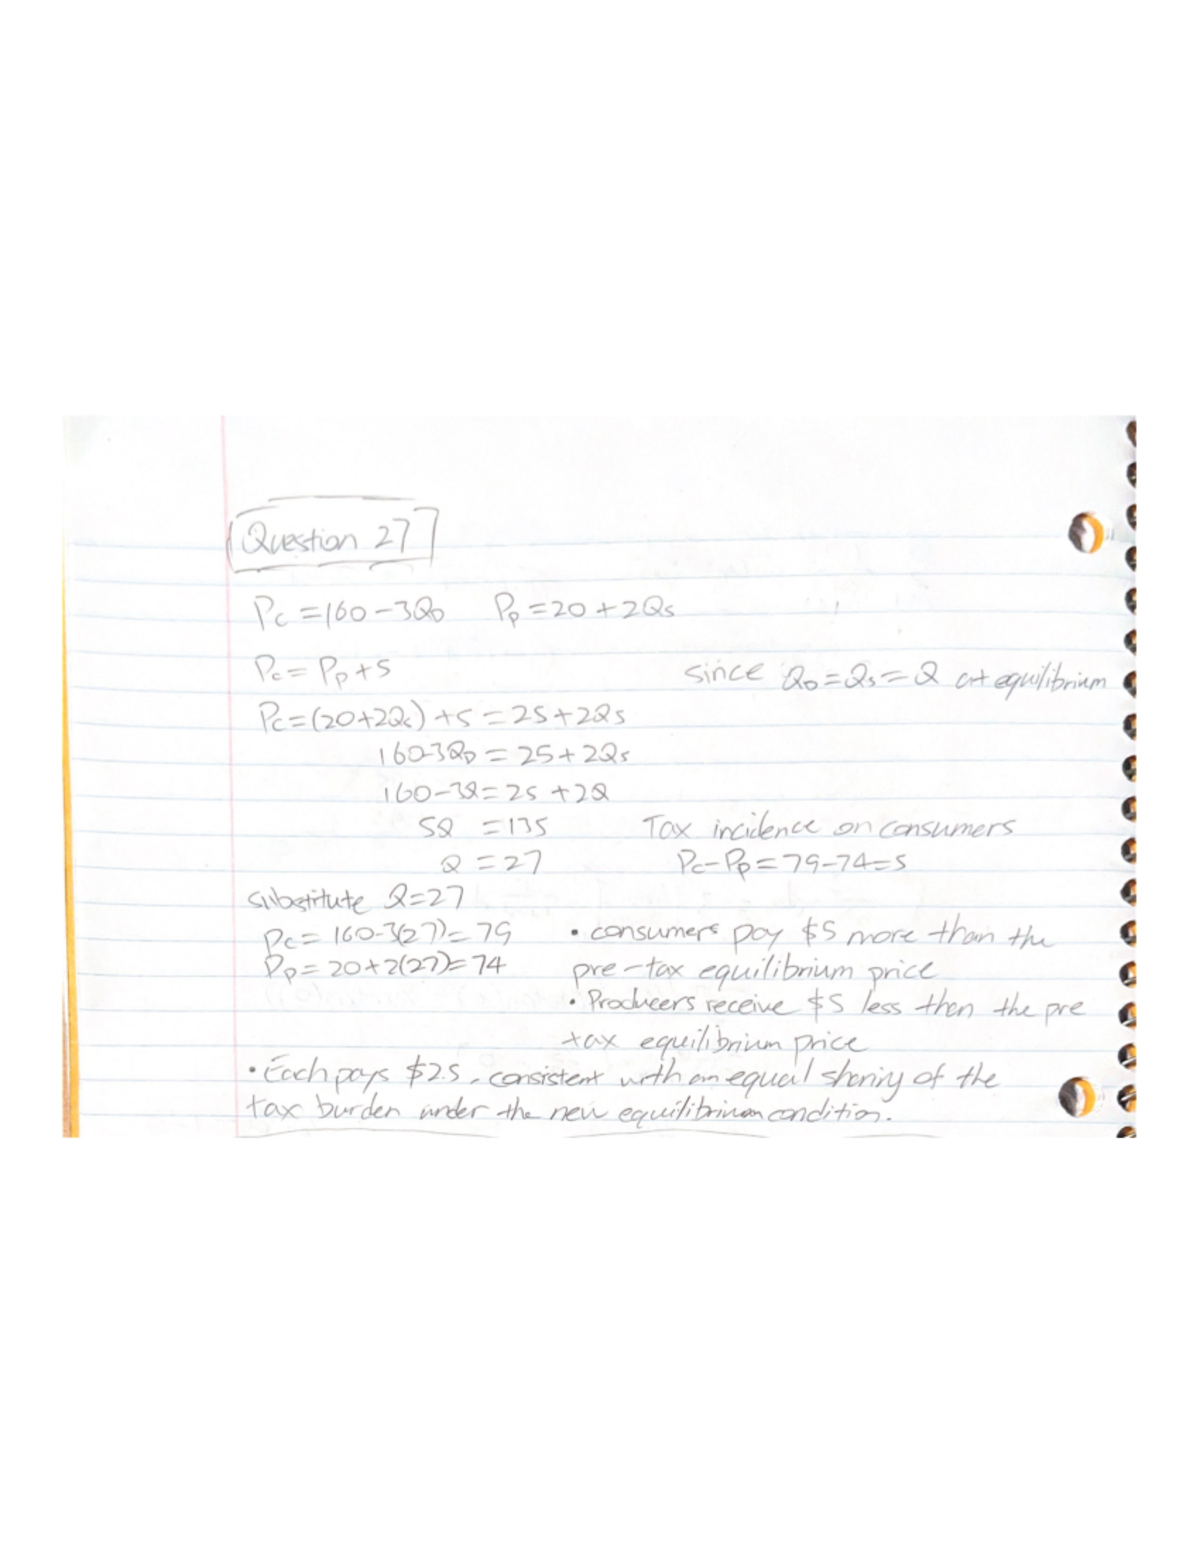 Question 27
Pc = 160 - 3QD    Pp = 20 + 2Qs
Pc = Pp + 5    since QD = Qs = Q at equilibrium
Pc = (20 + 2Qs) + 5 = 25 + 2Qs
160-3QD = 25 + 2Qs
160 - 3Q = 25 + 2Q
5Q = 135    Tax incidence on consumers
Q = 27    Pc - Pp = 79 - 74 = 5
substitute Q = 27
Pc = 160-3(27) = 79    • consumers pay $5 more than the
Pp = 20 + 2(27) = 74    pre-tax equilibrium price
• Producers receive $5 less then the pre
tax equilibrium price
• Each pays $2.5, consistent with an equal sharing of the
tax burden under the new equilibrium condition.